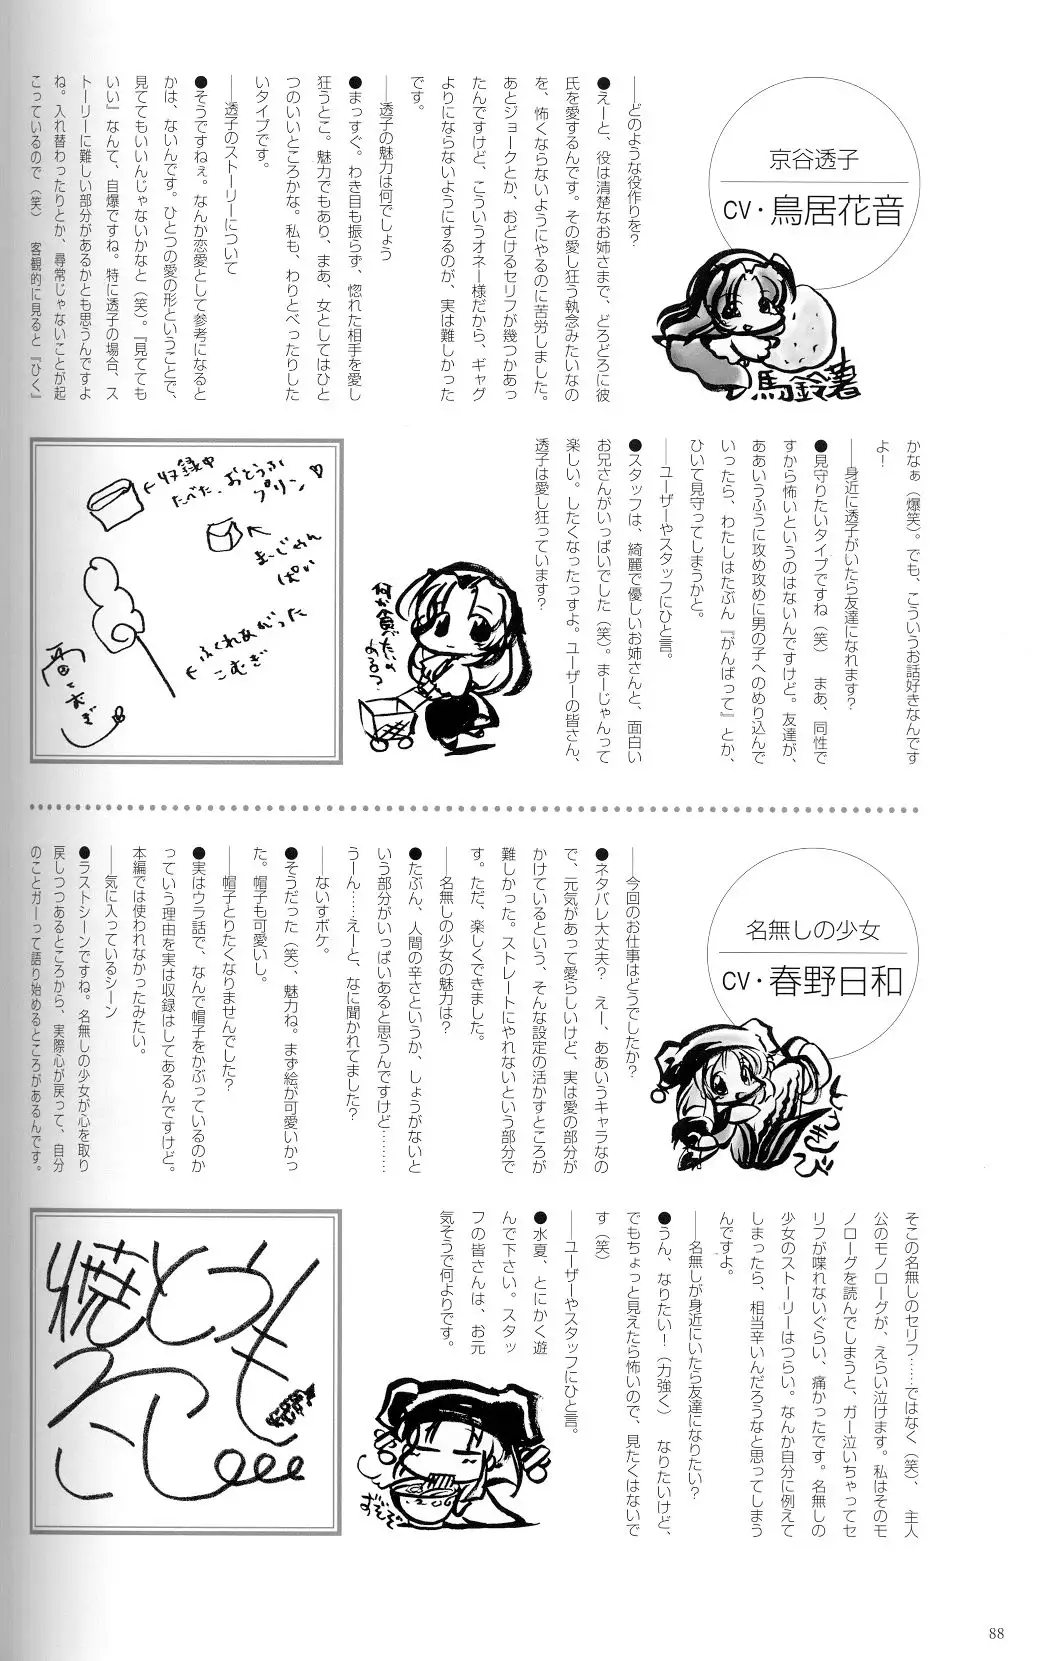 京谷透子
CV・鳥居花音
馬鈴薯
――どのような役作りを?
●えーと、役は清楚なお姉さまで、どろどろに彼
氏を愛するんです。その愛し狂う執念みたいなの
を、怖くならないようにやるのに苦労しました。
あとジョークとか、おどけるセリフが幾つかあっ
たんですけど、こういうオネー様だから、ギャグ
よりにならないようにするのが、実は難しかった
です。
――透子の魅力は何でしょう
●まっすぐ。わき目も振らず、惚れた相手を愛し
狂うとこ。魅力でもあり、まあ、女としてはひと
つのいいところかな。私も、わりとべったりした
いタイプです。
――透子のストーリーについて
●そうですねぇ。なんか恋愛として参考になると
かは、ないんです。ひとつの愛の形ということで、
見ててもいいんじゃないかなと(笑)。『見てても
いい』なんて、自爆ですね。特に透子の場合、ス
トーリーに難しい部分があるかとも思うんですよ
ね。入れ替わったりとか、尋常じゃないことが起
こっているので(笑) 客観的に見ると『ひく』
かなぁ(爆笑)。でも、こういうお話好きなんです
よ!
――身近に透子がいたら友達になれます?
●見守りたいタイプですね(笑) まあ、同性で
すから怖いというのはないんですけど。友達が、
ああいうふうに攻め攻めに男の子へのめり込んで
いったら、わたしはたぶん『がんばって』とか、
ひいて見守ってしまうかと。
――ユーザーやスタッフにひと言。
●スタッフは、綺麗で優しいお姉さんと、面白い
お兄さんがいっぱいでした(笑)。まーじゃんって
楽しい。したくなったっすよ。ユーザーの皆さん、
透子は愛し狂っています?
何か食べたいものある?
←収録中
たべた、おとうふ
プリン♡
←
まーじゃん
ぱい
←ふくれあがった
こむぎ
名無しの少女
CV・春野日和
――今回のお仕事はどうでしたか?
●ネタバレ大丈夫? えー、ああいうキャラなの
で、元気があって愛らしいけど、実は愛の部分が
かけているという、そんな設定の活かすところが
難しかった。ストレートにやれないという部分で
す。ただ、楽しくできました。
――名無しの少女の魅力は?
●たぶん、人間の辛さというか、しょうがないと
いう部分がいっぱいあると思うんですけど………
うーん……えーと、なに聞かれてました?
――ないすボケ。
●そうだった(笑)、魅力ね。まず絵が可愛いかっ
た。帽子も可愛いし。
――帽子とりたくなりませんでした?
●実はウラ話で、なんで帽子をかぶっているのか
っていう理由を実は収録はしてあるんですけど。
本編では使われなかったみたい。
――気に入っているシーン
●ラストシーンですね。名無しの少女が心を取り
戻しつつあるところから、実際心が戻って、自分
のことガーって語り始めるところがあるんです。
そこの名無しのセリフ……ではなく(笑)、 主人
公のモノローグが、えらい泣けます。私はそのモ
ノローグを読んでしまうと、ガー泣いちゃってセ
リフが喋れないぐらい、痛かったです。名無しの
少女のストーリーはつらい。なんか自分に例えて
しまったら、相当辛いんだろうなと思ってしまう
んですよ。
――名無しが身近にいたら友達になりたい?
●うん、なりたい!(力強く) なりたいけど、
でもちょっと見えたら怖いので、見たくはないで
す(笑)
――ユーザーやスタッフにひと言。
●水夏、とにかく遊
んで下さい。スタッ
フの皆さんは、お元
気そうで何よりです。
焼とうもろこし
88